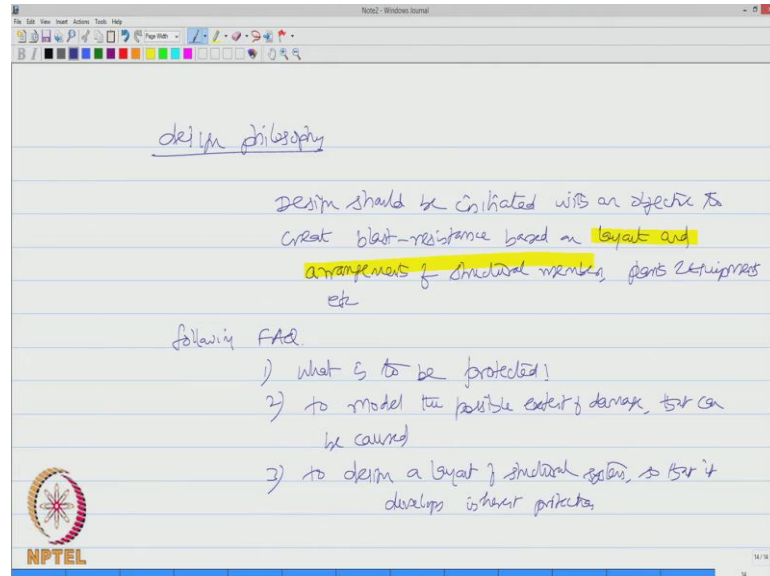 Note2 - Windows Journal
File Edit View Insert Actions Tools Help
Page Width
B I
design philosophy
Design should be initiated with an objective to
creat blast-resistance based on layout and
arrangements of structural member, plants & equipments
etc
following FAQ.
1) what is to be protected!
2) to model the possible extent of damage, that can
be caused
3) to design a layout of structural system, so that it
develops inherent protection
NPTEL
14 / 14